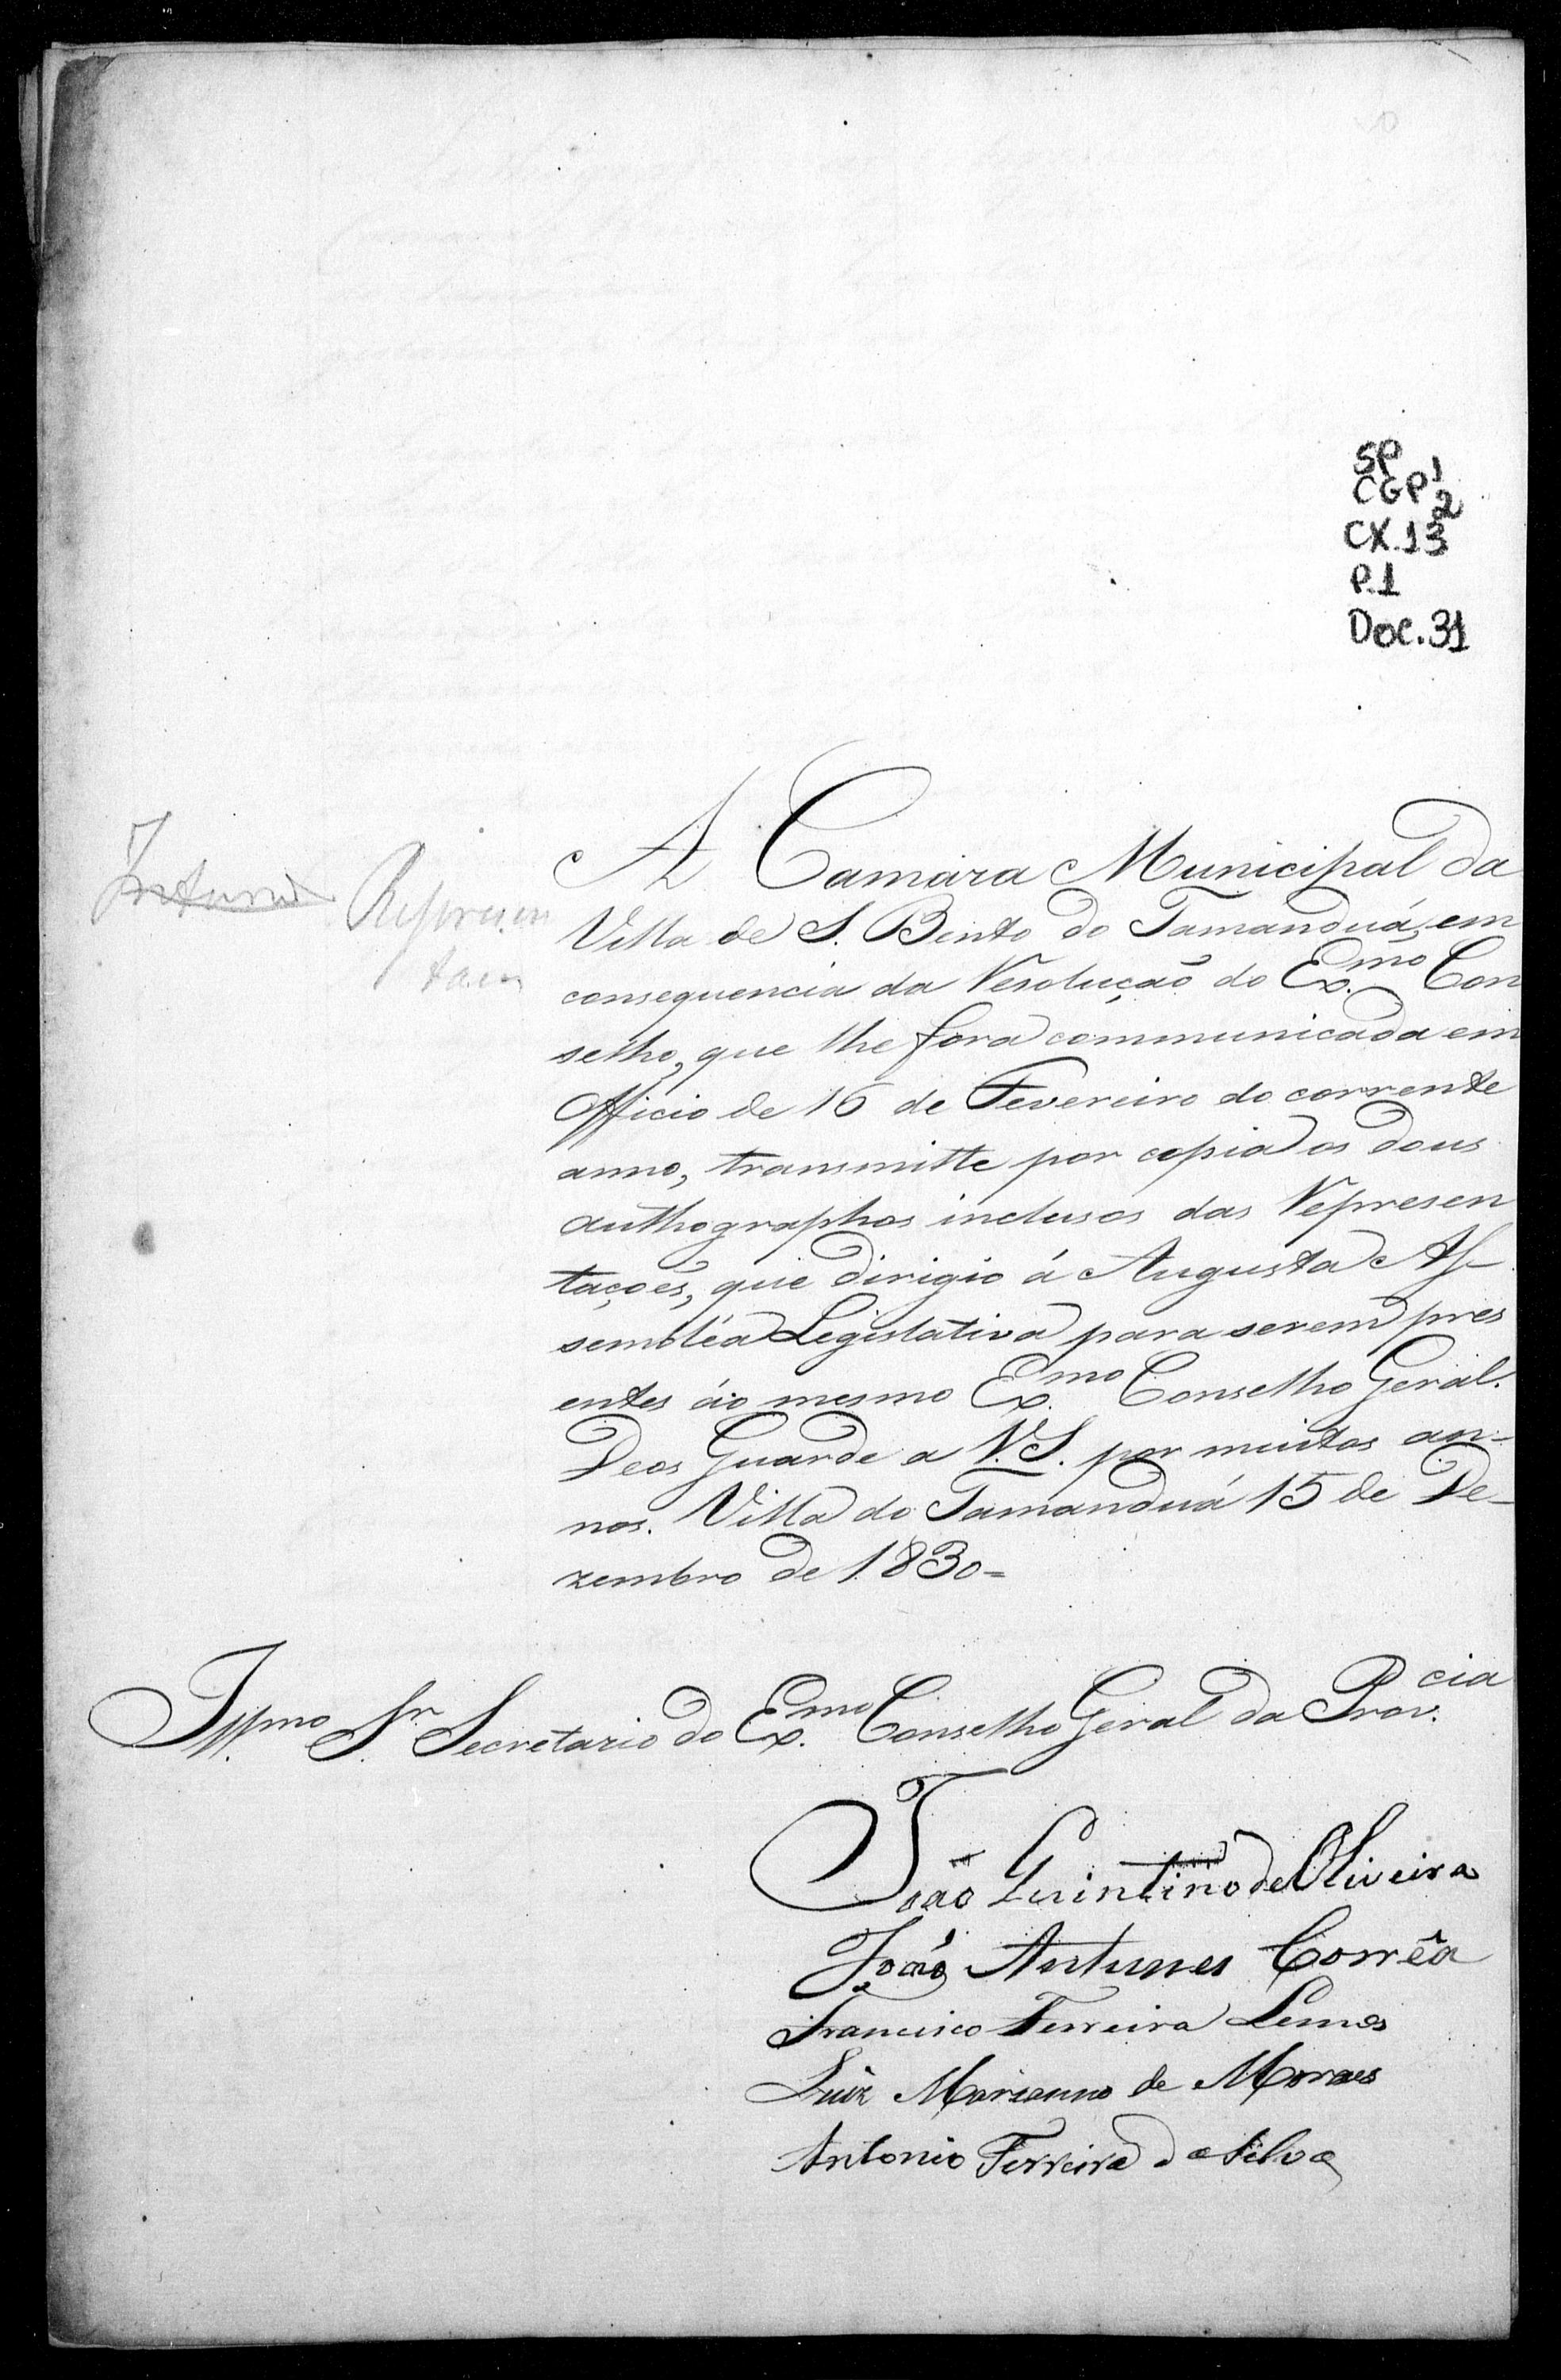 SP
CGP 1/2
CX.13
P.1
Doc.31
Represen
taen
A Camara Municipal da
Villa de S. Bento do Tamanduá, em
consequencia da Resolução do Ex.mo Con
selho, que lhe fora communicada em
Officio de 16 de Fevereiro do corrente
anno, transmitte por copia os dous
authographos inclusos das Represen
tações, que dirigio á Augusta As-
sembléa Legislativa para serem pres
entes áo mesmo Ex.mo Conselho Geral.
Deos Guarde a V.S. por muitos an-
nos. Villa do Tamanduá 15 de De-
zembro de 1830=
Ill.mo S.r Secretario do Ex.mo Conselho Geral da Prov.cia
João Quintino de Oliveira
João Antunes Corrêa
Francisco Ferreira Lemos
Luiz Marianno de Moraes
Antonio Ferreira da Silva